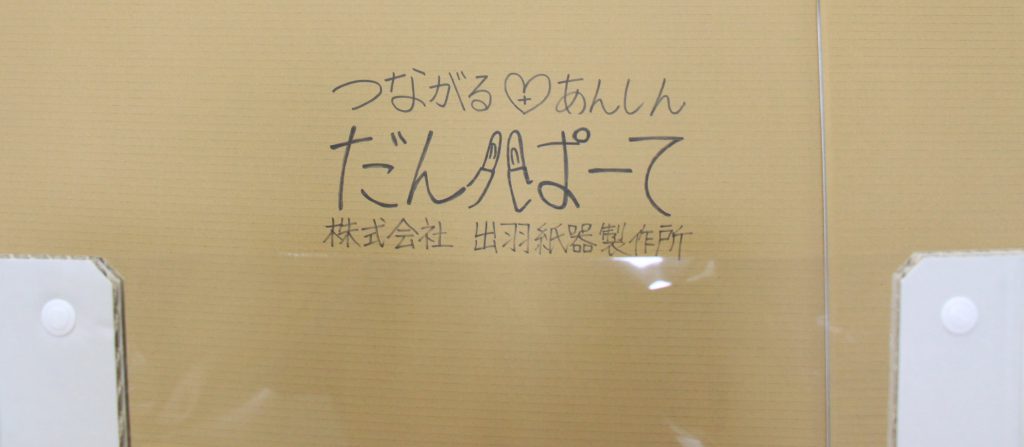 つながる♡あんしん
だんぱーて
株式会社 出羽紙器製作所